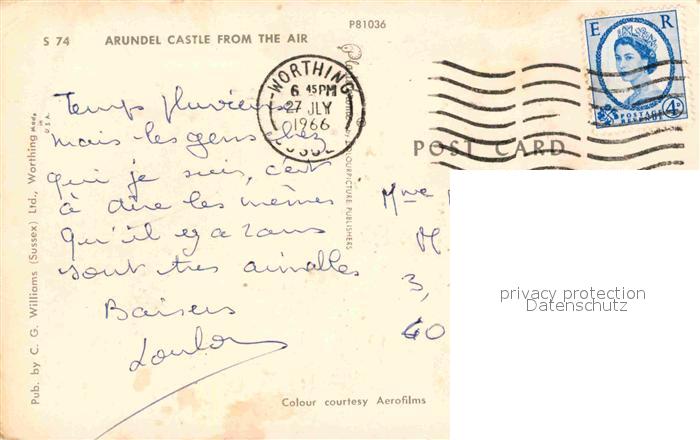 P81036
S 74 ARUNDEL CASTLE FROM THE AIR
E R
POSTAGE
REVENUE
4D
WORTHING
6 45 PM
27 JLY
1966
SUSSEX
POST CARD
Temps pluvieux
mais les gens chez
qui je suis, c'est
à dire les mêmes
qu'il y a 2 ans
sont très aimables
Baisers
Loulou
Mme
M
3,
60
privacy protection
Datenschutz
Pub. by C. G. Williams (Sussex) Ltd., Worthing
Made in U.S.A.
COLOURPICTURE PUBLISHERS
Colour courtesy Aerofilms